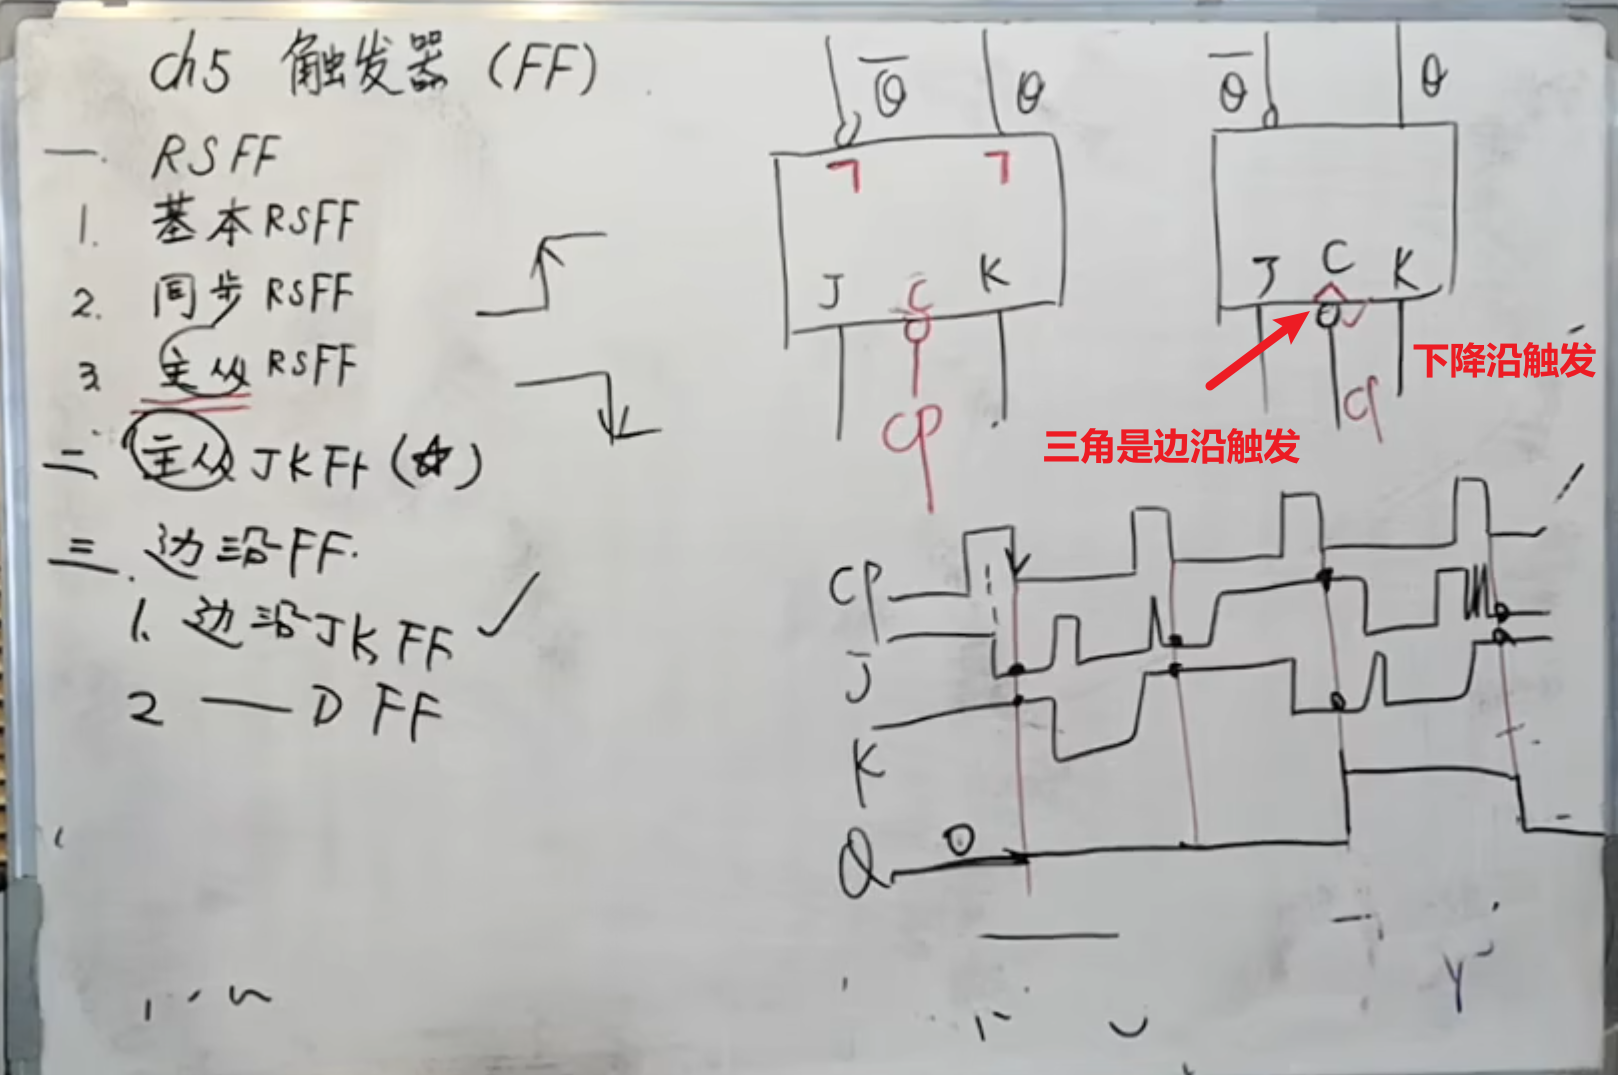 ch5 触发器 (FF)
一. RSFF
1. 基本RSFF
2. 同步RSFF
3. 主从RSFF
二 主从JKFF (☆)
三. 边沿FF.
1. 边沿JKFF ✓
2 — D FF
Q̅ Q
J C K
CP
Q̅ Q
J C K
CP
下降沿触发
三角是边沿触发
CP
J
K
Q 0